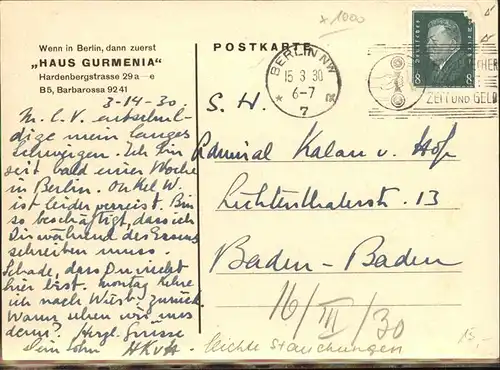 Wenn in Berlin, dann zuerst
„HAUS GURMENIA“
Hardenbergstrasse 29 a—e
B5, Barbarossa 92 41
3-14-30.
M. L. V. entschul-
dige mein langes
Schweigen. Ich bin
seit bald einer Woche
in Berlin. Onkel W.
ist leider verreist. Bin
so beschäftigt, dass ich
Dir während des Essens
schreiben muss.
Schade, dass Du nicht
hier bist. Montag kehre
ich nach Würtb. zurück.
Wann sehen wir uns
denn? Herzl. Grüsse
Dein Sohn HKvH
POSTKARTE
x 1000
BERLIN NW
15 3 30
6-7
* 7
DEUTSCHES
8 8
ZEIT UND GELD
S. H.
Admiral Kalau v. Hofe
Lichtenthalerstr. 13
Baden-Baden
16/III/30
leichte Stauchungen
15.-